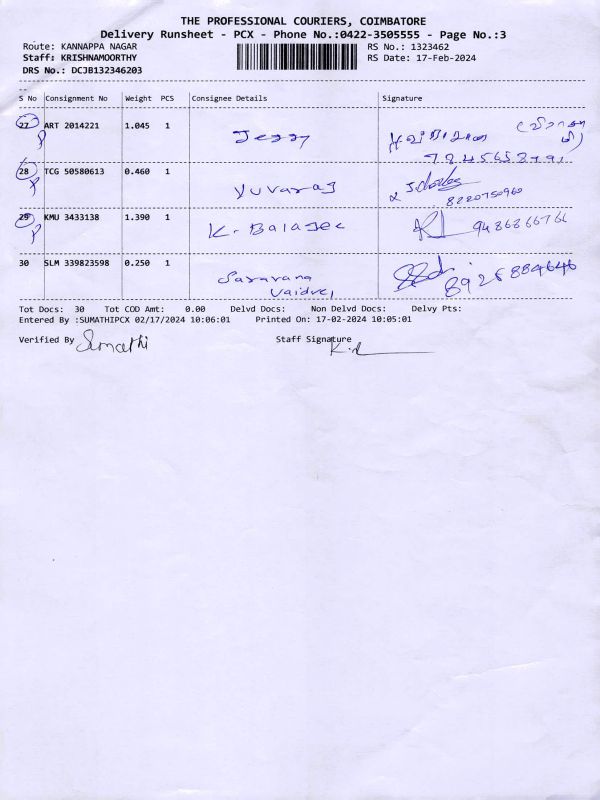 THE PROFESSIONAL COURIERS, COIMBATORE
Delivery Runsheet - PCX - Phone No.:0422-3505555 - Page No.:3
Route: KANNAPPA NAGAR
Staff: KRISHNAMOORTHY
DRS No.: DCJB132346203
RS No.: 1323462
RS Date: 17-Feb-2024
S No Consignment No Weight PCS Consignee Details Signature
27 ART 2014221 1.045 1 Jessy
28 TCG 50580613 0.460 1 Yuvaraj 8220750960
29 KMU 3433138 1.390 1 K. Balajee
30 SLM 339823598 0.250 1 Saravana
Tot Docs: 30 Tot COD Amt: 0.00 Delvd Docs: Non Delvd Docs: Delvy Pts:
Entered By :SUMATHIPCX 02/17/2024 10:06:01 Printed On: 17-02-2024 10:05:01
Verified By Sumathi Staff Signature